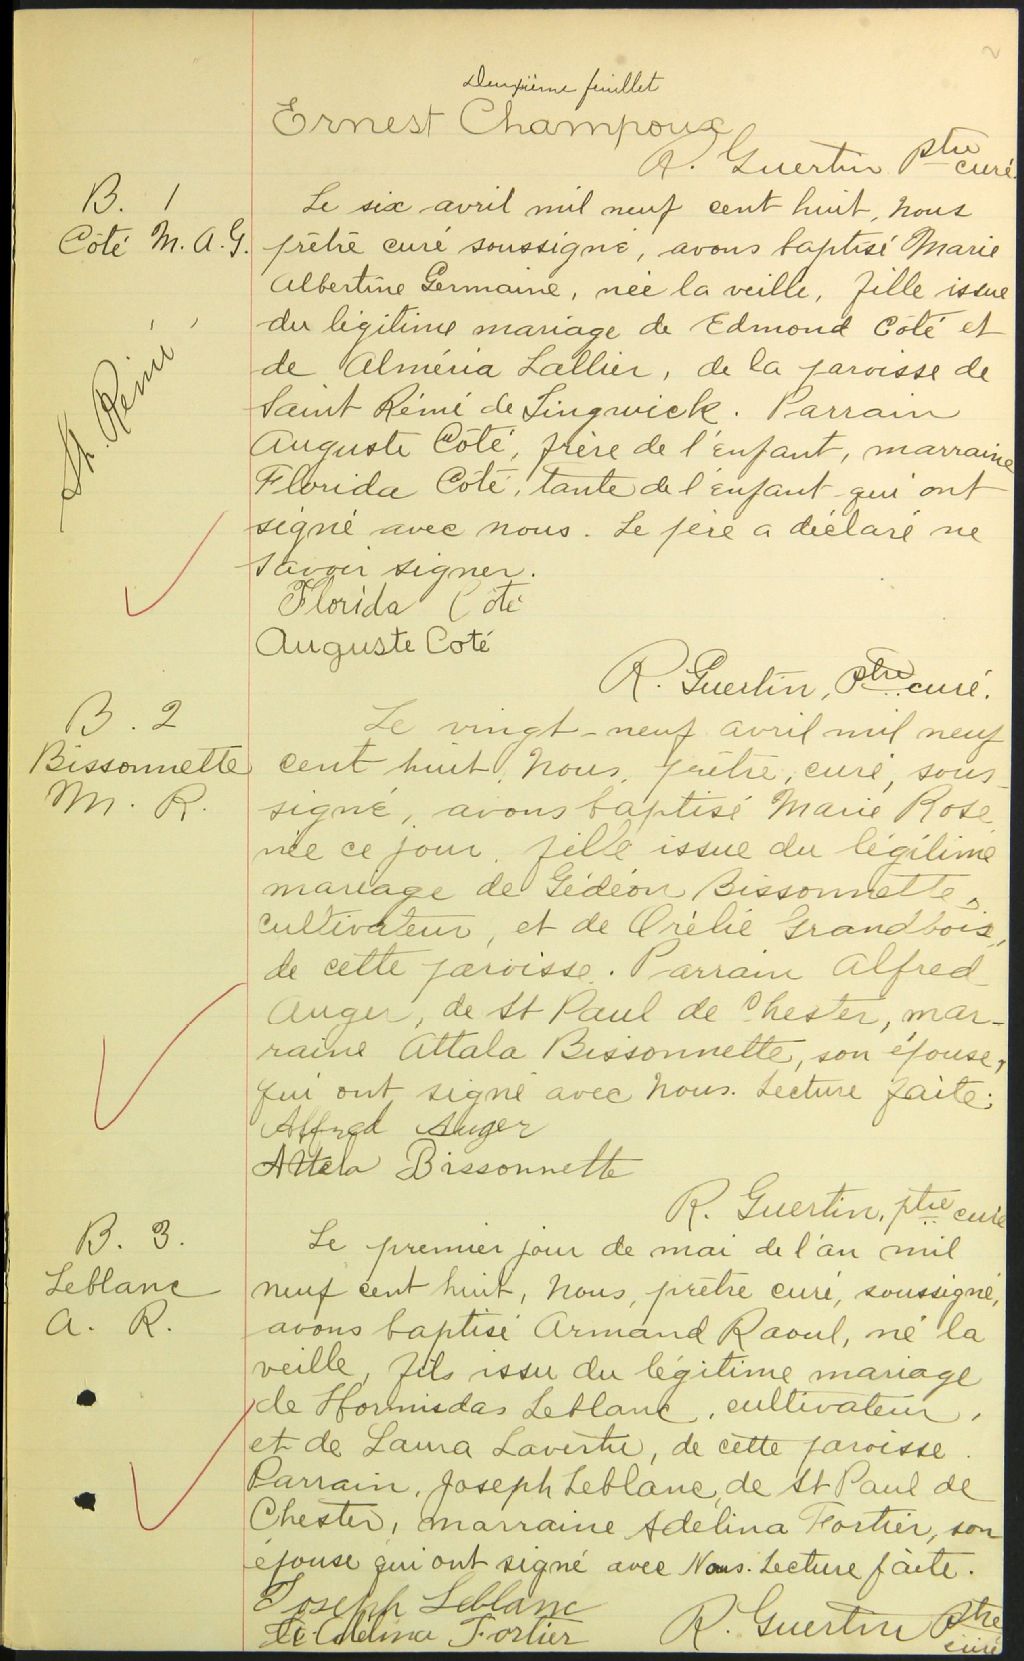 Deuxième feuillet
Ernest Champoux
R. Guertin Ptre curé.
B. 1
Côté M. A. G.
St. Rémi
Le six avril mil neuf cent huit, nous
prêtre curé soussigné, avons baptisé Marie
Albertine Germaine, née la veille, fille issue
du légitime mariage de Edmond Côté et
de Alméria Lallier, de la paroisse de
Saint Rémi de Lingwick. Parrain
Auguste Côté, frère de l'enfant, marraine
Florida Côté, tante de l'enfant qui ont
signé avec nous. Le père a déclaré ne
savoir signer.
Florida Côté
Auguste Coté
R. Guertin, Ptre curé.
B. 2
Bissonnette
M. R.
Le vingt-neuf avril mil neuf
cent huit, Nous, prêtre, curé, sous-
signé, avons baptisé Marie Rose
née ce jour, fille issue du légitime
mariage de Gédéon Bissonnette,
cultivateur, et de Orélie Grandbois,
de cette paroisse. Parrain Alfred
Auger, de St Paul de Chester, mar-
raine Attala Bissonnette, son épouse,
qui ont signé avec Nous. Lecture faite.
Alfred Auger
Attala Bissonnette
R. Guertin, ptre curé
B. 3.
Leblanc
A. R.
Le premier jour de mai de l'an mil
neuf cent huit, Nous, prêtre curé, soussigné,
avons baptisé Armand Raoul, né la
veille, fils issu du légitime mariage
de Hormisdas Leblanc, cultivateur,
et de Laura Lavertu, de cette paroisse.
Parrain, Joseph Leblanc, de St Paul de
Chester, marraine Adelina Fortier, son
épouse qui ont signé avec Nous. Lecture faite.
Joseph Leblanc
Adelina Fortier
R. Guertin Ptre curé